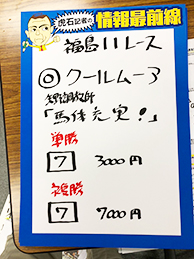 虎石記者の
情報最前線
福島11レース
◎クールムーア
調教師
「馬体充実！」
単勝
7 3000円
複勝
7 7000円